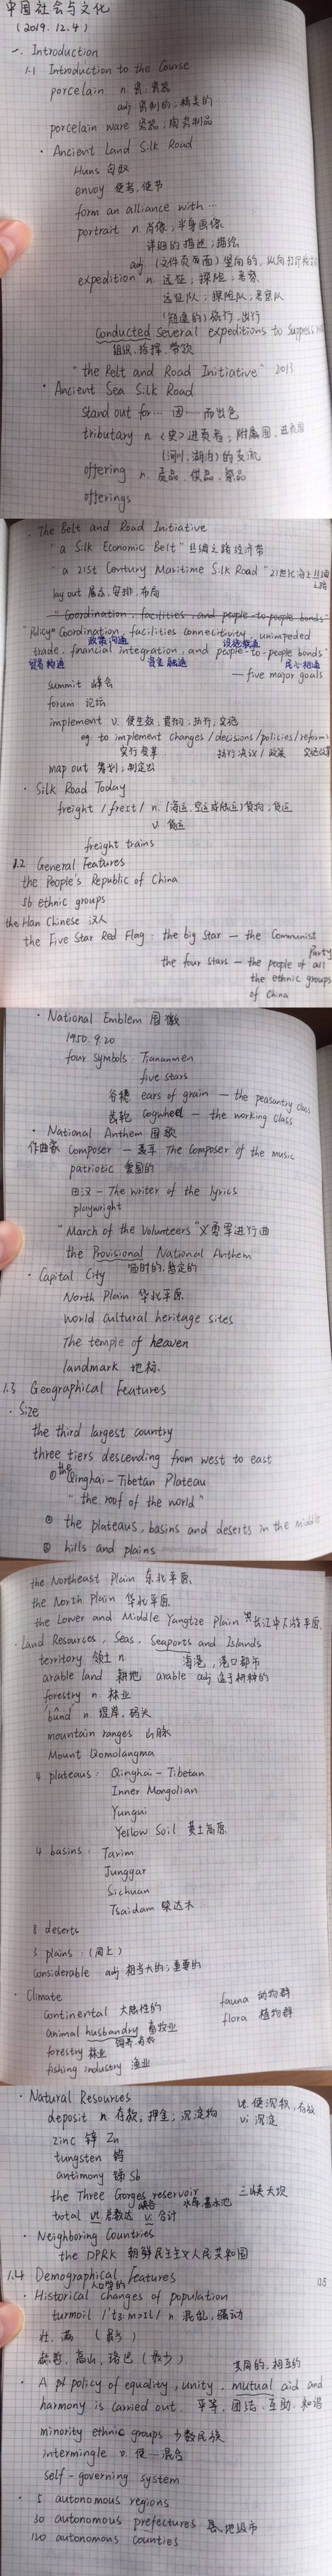 中国社会与文化
(2019.12.4)
一. Introduction
1.1 Introduction to the Course
porcelain n. 瓷, 瓷器
adj 瓷制的; 精美的
porcelain ware 瓷器; 陶瓷制品
· Ancient Land Silk Road
Huns 匈奴
envoy 使者, 使节
form an alliance with …
portrait n. 肖像; 半身画像
详细的描述; 描绘
adj (文件页面) 竖向的, 纵向打印格式的
expedition n. 远征; 探险; 考察
远征队; 探险队, 考察队
(短途的) 旅行, 出行
conducted several expeditions to suppress
组织, 指挥, 带领
"the Belt and Road Initiative" 2013
· Ancient Sea Silk Road
stand out for … 因…而出色
tributary n. <史> 进贡者; 附属国, 进贡国
(河川, 湖泊) 的支流
offering n. 贡品, 供品, 祭品
offerings
· The Belt and Road Initiative
"a Silk Economic Belt" 丝绸之路经济带
a 21st Century Maritime Silk Road "21世纪海上丝绸之路
lay out 展示, 安排, 布局
"Coordination, facilities, and people-to-people bonds"
"Policy Coordination, facilities connectivity, unimpeded
政策沟通 设施联通
trade, financial integration, and people-to-people bonds
贸易畅通 资金融通 民心相通
— five major goals
summit 峰会
forum 论坛
implement v. 使生效, 贯彻, 执行, 实施
eg. to implement changes / decisions / policies / reforms
实行变革 执行决议 / 政策 实施改革
map out 筹划; 制定出
· Silk Road Today
freight /freɪt/ n. (海运, 空运或陆运) 货物; 货运
v. 货运
freight trains
1.2 General Features
the People's Republic of China
56 ethnic groups
the Han Chinese 汉人
the Five Star Red Flag: the big star — the Communist Party
the four stars — the people of all
the ethnic groups
of China
· National Emblem 国徽
1950.9.20
four symbols: Tiananmen
five stars
谷穗 ears of grain — the peasantry class
齿轮 cogwheel — the working class
· National Anthem 国歌
作曲家 composer — 聂耳 The composer of the music
patriotic 爱国的
田汉 — The writer of the lyrics
playwright
"March of the Volunteers" 义勇军进行曲
the Provisional National Anthem
临时的, 暂定的
· Capital City
North Plain 华北平原
World cultural heritage sites
The temple of heaven
landmark 地标
1.3 Geographical Features
· Size
the third largest country
three tiers descending from west to east
① the Qinghai - Tibetan Plateau
"the roof of the world"
② the plateaus, basins and deserts in the middle
③ hills and plains
the Northeast Plain 东北平原
the North Plain 华北平原
the Lower and Middle Yangtze Plain 长江中下游平原
· Land Resources, Seas, Seaports and Islands
territory 领土 n. 海港, 港口都市
arable land 耕地 arable adj 适于耕种的
forestry n. 林业
bund n. 堤岸, 码头
mountain ranges 山脉
Mount Qomolangma
4 plateaus: Qinghai - Tibetan
Inner Mongolian
Yungui
Yellow Soil 黄土高原
4 basins: Tarim
Junggar
Sichuan
Tsaidam 柴达木
8 deserts
3 plains: (同上)
considerable adj 相当大的; 重要的
· Climate
continental 大陆性的 fauna 动物群
animal husbandry 畜牧业 flora 植物群
forestry 林业
fishing industry 渔业
· Natural Resources
deposit n. 存款; 押金; 沉淀物 vt. 使沉积, 存放
vi 沉淀
zinc 锌 Zn
tungsten 钨
antimony 锑 Sb
the Three Gorges reservoir 三峡大坝
峡谷 水库 蓄水池
total vt. 总数达 v. 合计
· Neighboring Countries
the DPRK 朝鲜民主主义人民共和国
1.4 Demographical Features
人口学的
· Historical changes of population
turmoil /'tɜːmɔɪl/ n. 混乱, 骚动
壮, 满 (最多)
高山, 珞巴 (最少)
共同的, 相互的
· A policy of equality, unity, mutual aid and
harmony is carried out. 平等, 团结, 互助, 和谐
minority ethnic groups 少数民族
intermingle v. 使…混合
self-governing system
· 5 autonomous regions
30 autonomous prefectures 县, 地级市
120 autonomous counties